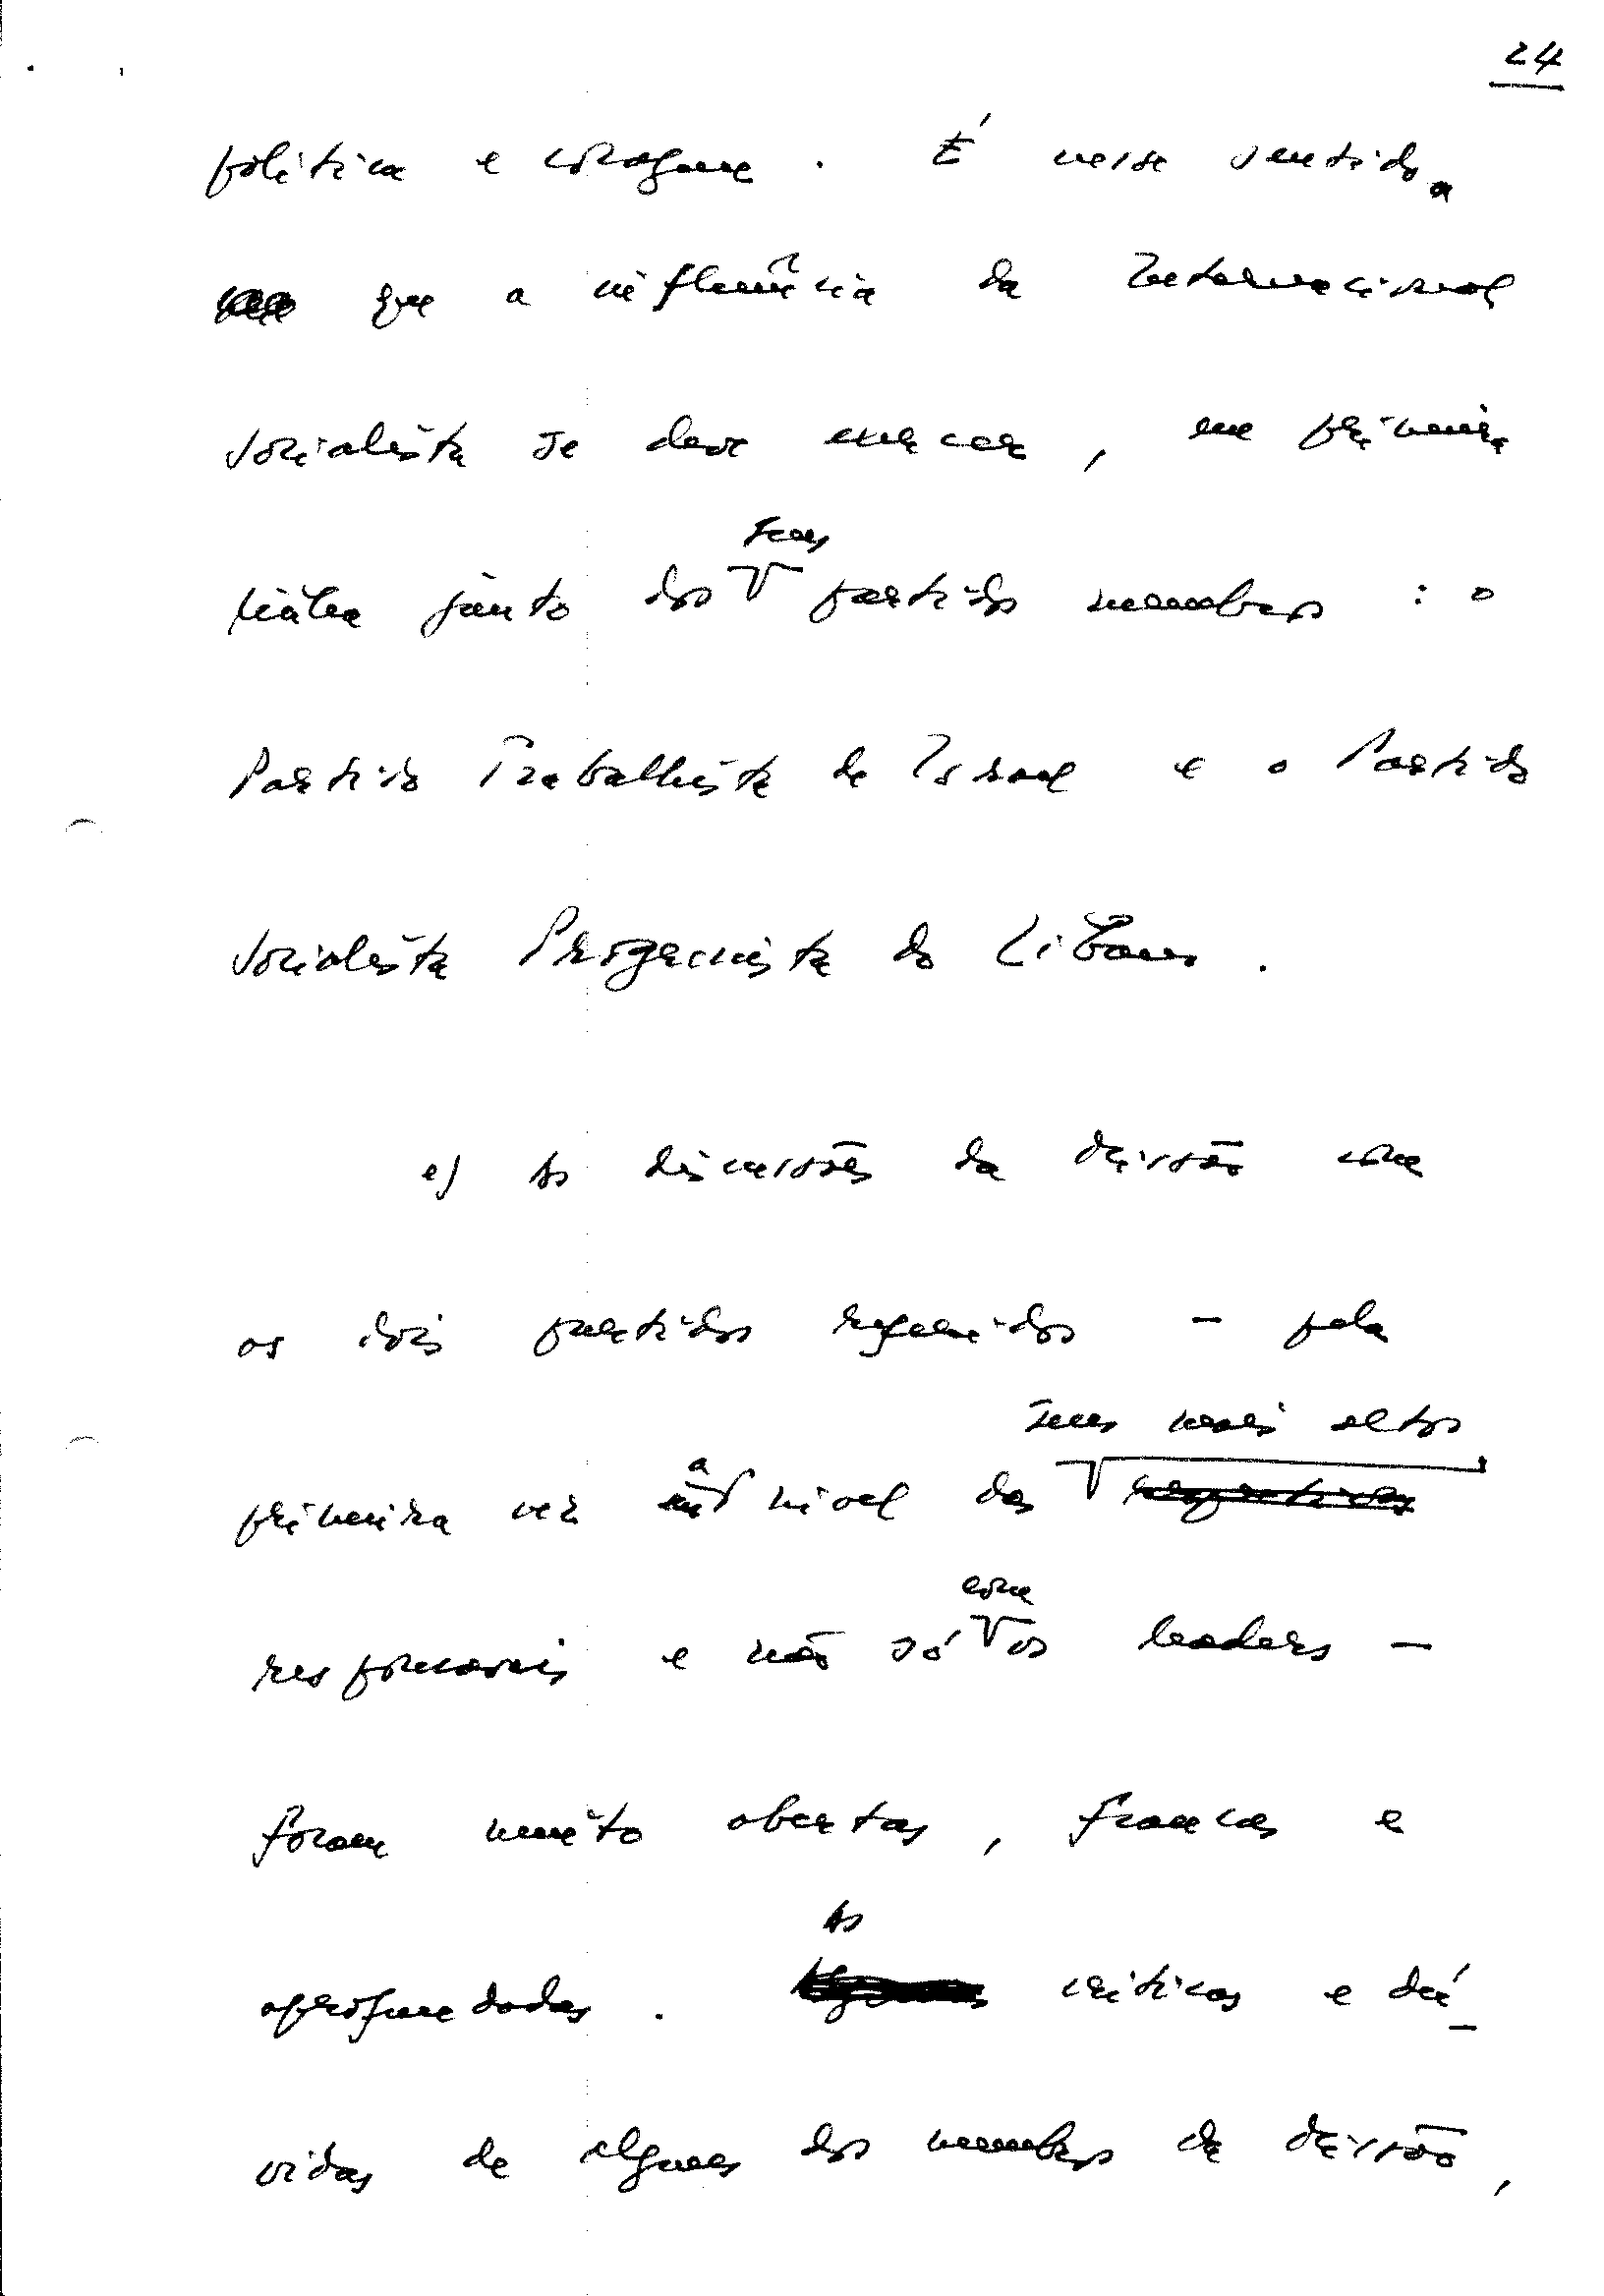 24
política e coragem. É nesse sentido
que a influência da Internacional
Socialista se deve exercer, em primeira
linha junto dos seus partidos membros : o
Partido Trabalhista de Israel e o Partido
Socialista Progressista do Líbano.
e) As discussões da missão com
os dois partidos referidos – pela
seus mais altos
primeira vez a nível dos
com
responsáveis e não só os leaders –
foram muito abertas, francas e
As
aprofundadas. críticas e dú-
vidas de alguns dos membros da missão,